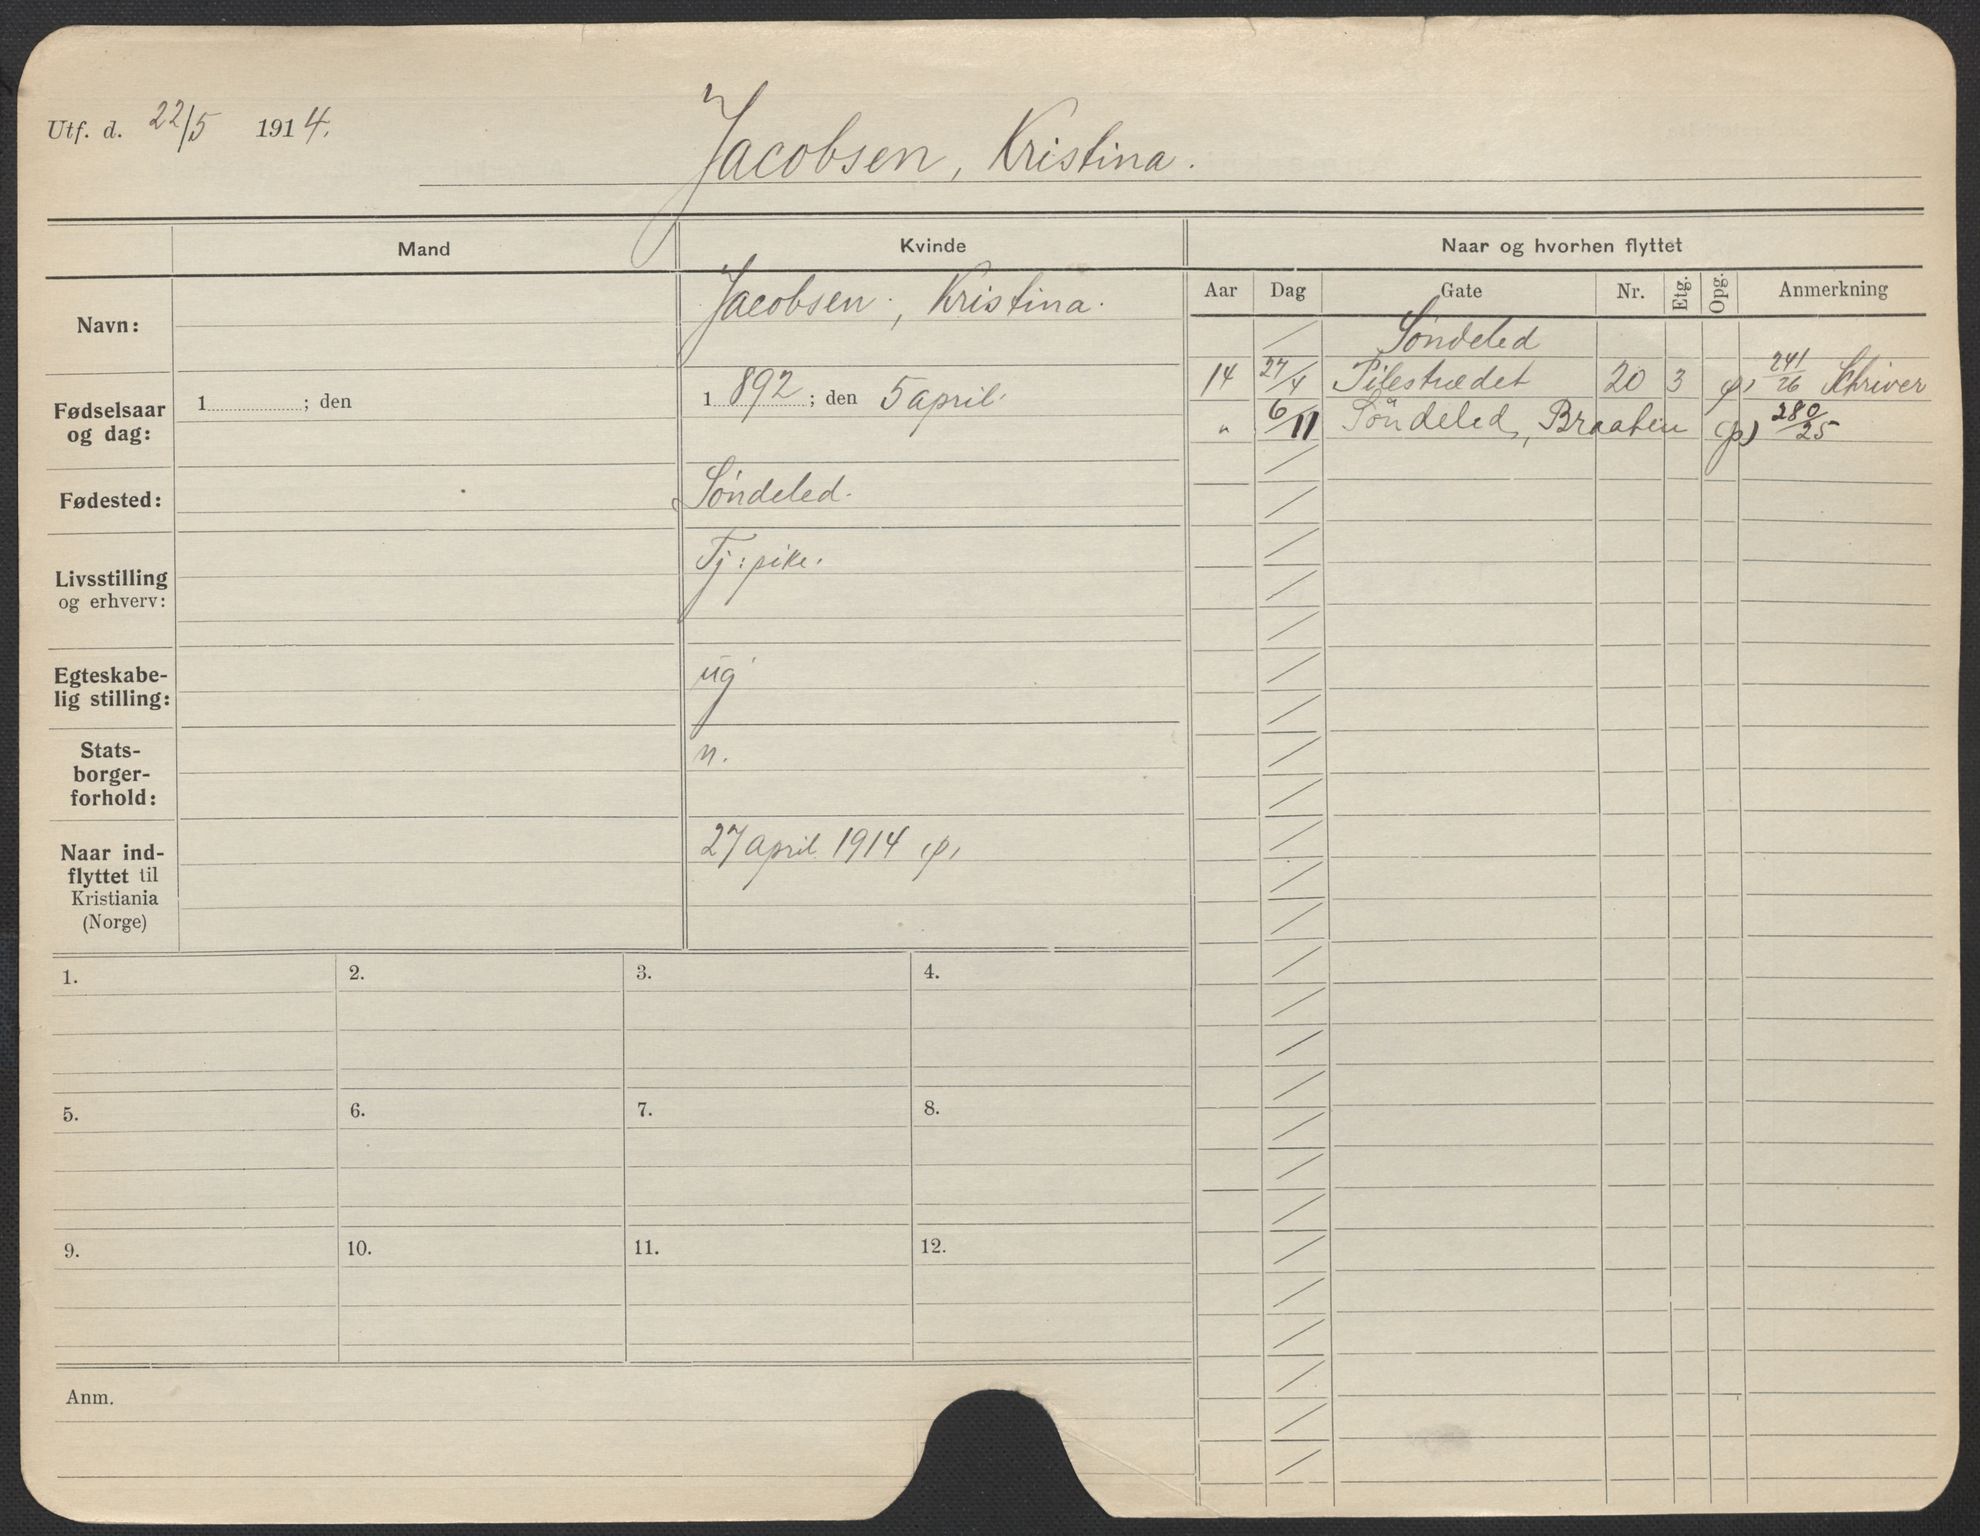 Utf. d. 22/5 1914.
Jacobsen, Kristina.
Mand
Kvinde
Naar og hvorhen flyttet
Aar Dag Gate Nr. Etg. Opg. Anmerkning
Navn:
Jacobsen, Kristina.
Fødselsaar og dag:
1 ; den
1 892 ; den 5 april.
Fødested:
Søndeled.
Livsstilling og erhverv:
Tj: pike.
Egteskabe-
lig stilling:
ug
Stats-
borger-
forhold:
n.
Naar ind-
flyttet til
Kristiania
(Norge)
27 april 1914 (p)
Søndeled
14 27/4 Pilestrædet 20 3 (p) 241/26 Schriver
" 6/11 Söndeled, Braaten (p) 280/25
1. 2. 3. 4.
5. 6. 7. 8.
9. 10. 11. 12.
Anm.